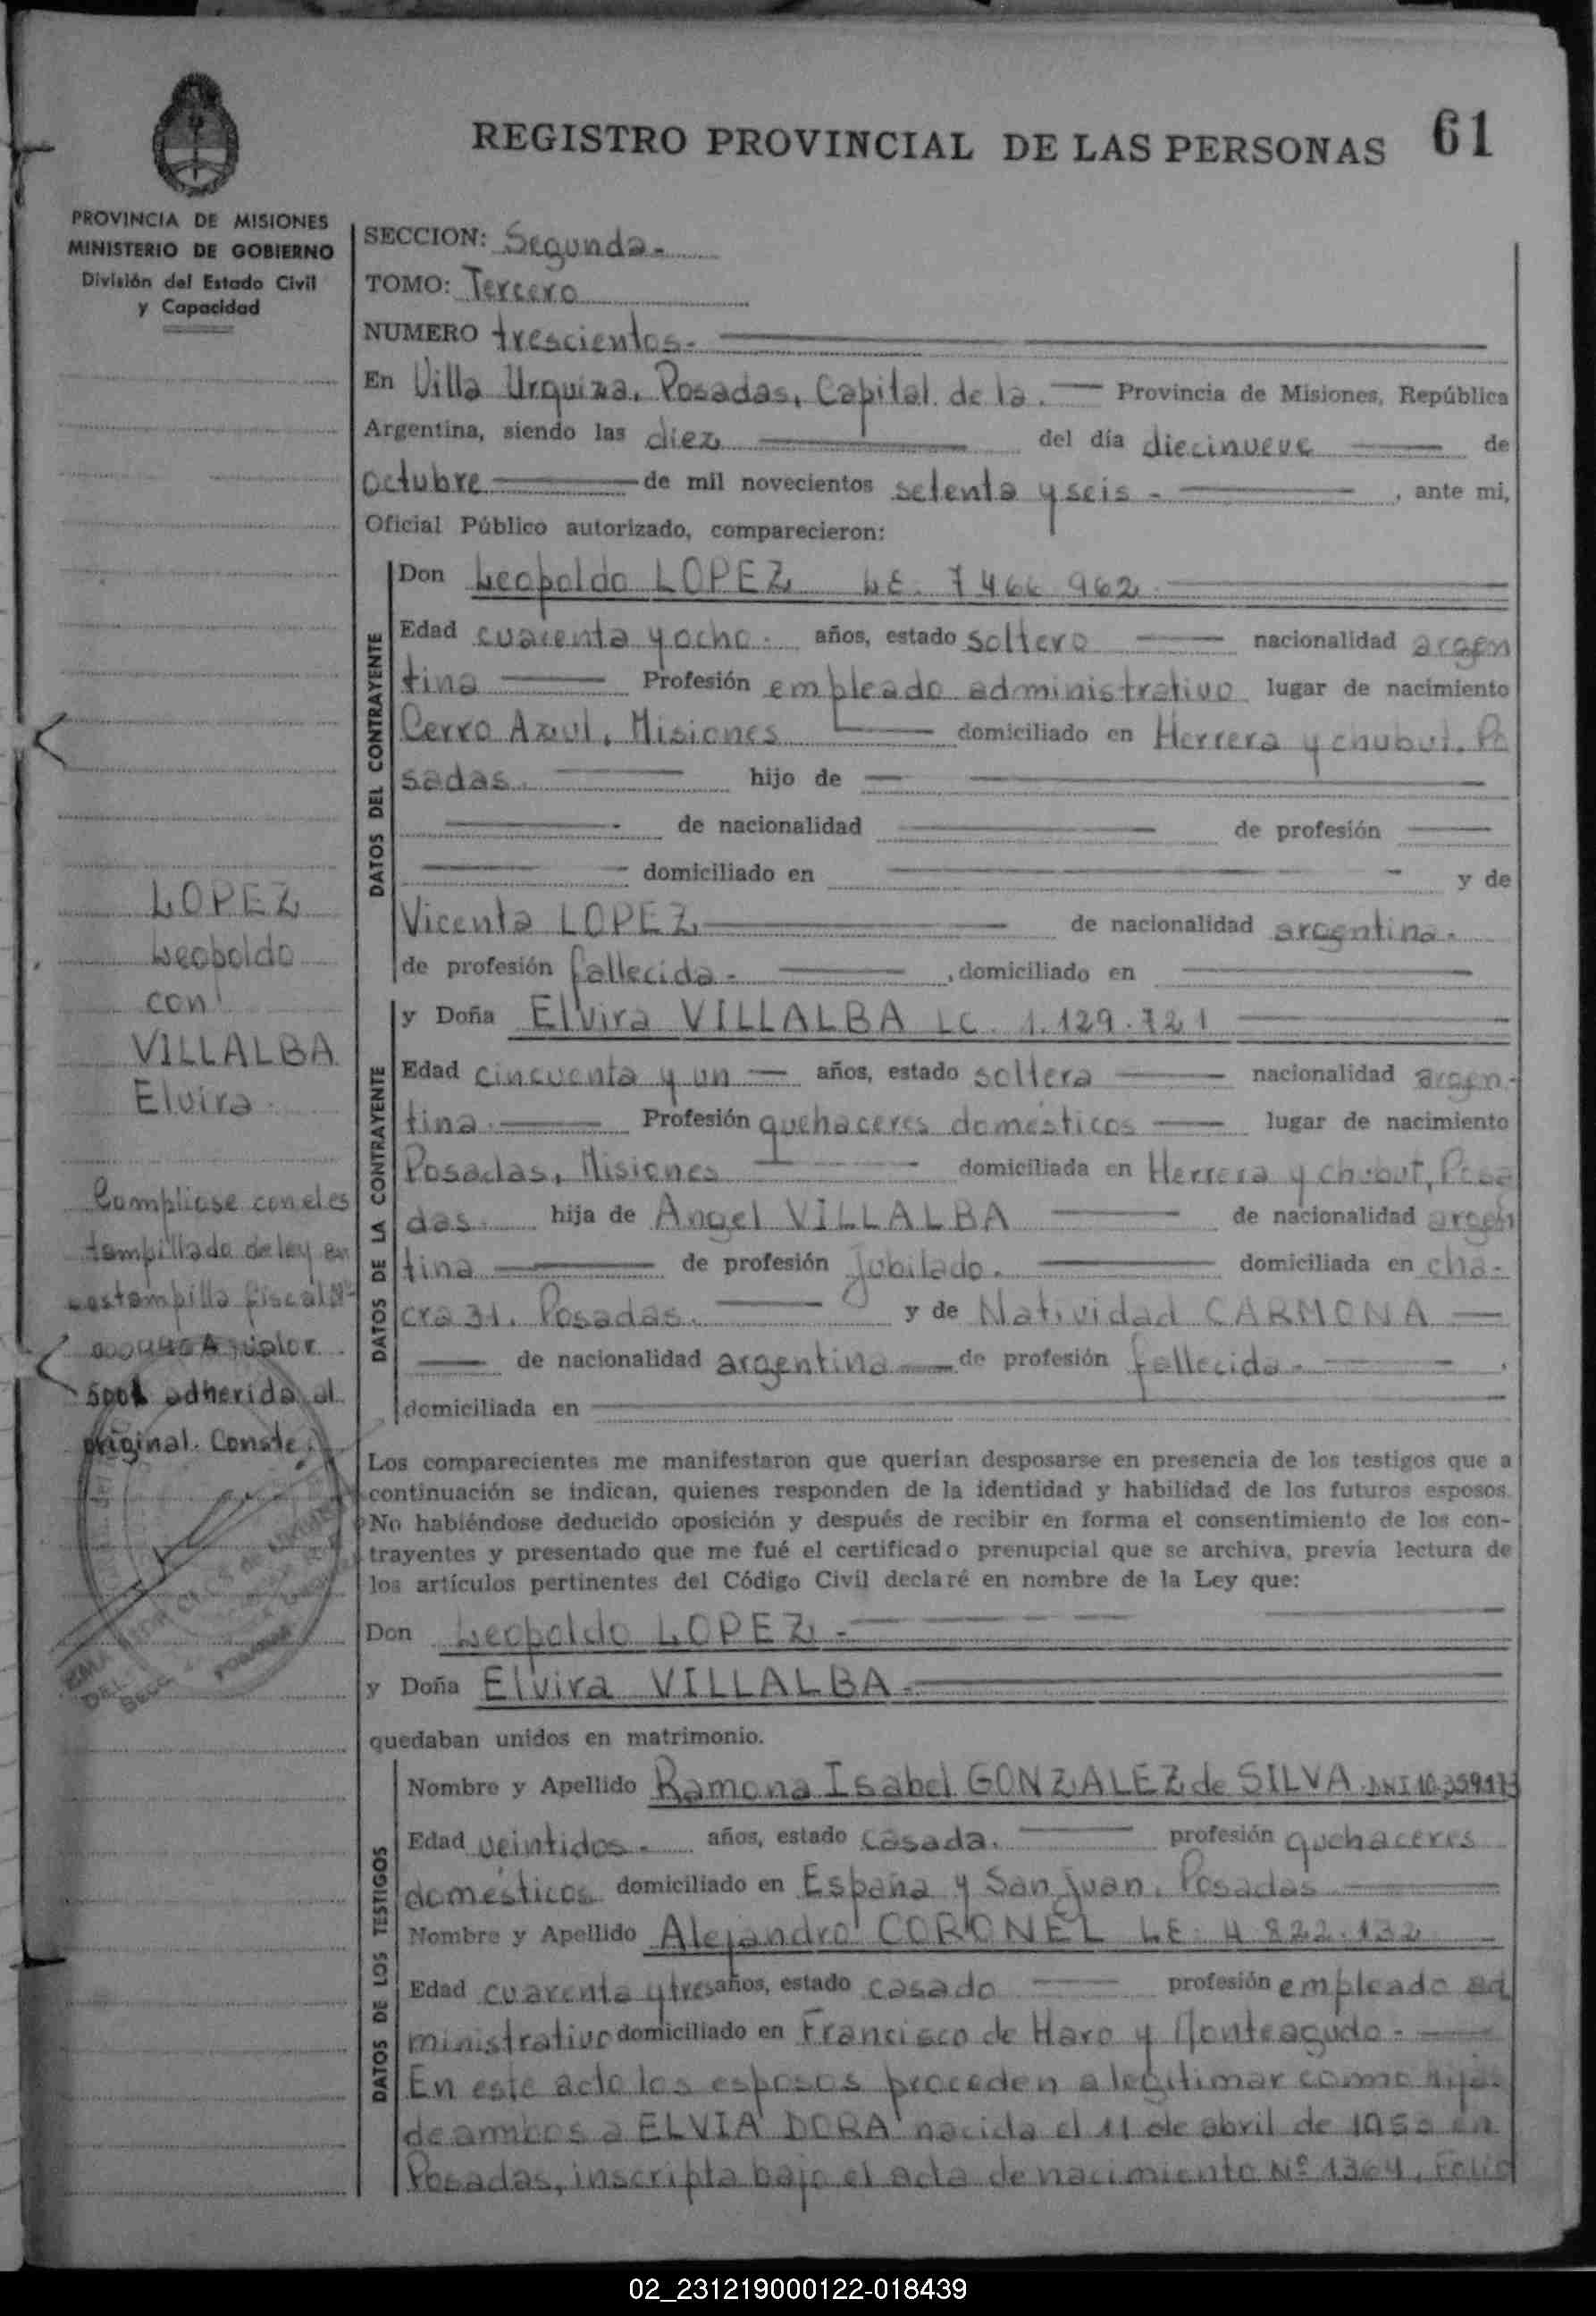 REGISTRO PROVINCIAL DE LAS PERSONAS 61
PROVINCIA DE MISIONES
MINISTERIO DE GOBIERNO
División del Estado Civil
y Capacidad
SECCION: Segunda.
TOMO: Tercero
NUMERO trescientos.
En Villa Urquiza, Posadas, Capital de la. Provincia de Misiones, República
Argentina, siendo las diez del día diecinueve de
octubre de mil novecientos setenta y seis. , ante mi,
Oficial Público autorizado, comparecieron:
DATOS DEL CONTRAYENTE
Don Leopoldo LOPEZ LE. 7466962
Edad cuarenta y ocho. años, estado soltero nacionalidad argen
tina Profesión empleado administrativo lugar de nacimiento
Cerro Azul, Misiones domiciliado en Herrera y chubut. Po
sadas. hijo de
de nacionalidad de profesión
domiciliado en y de
Vicenta LOPEZ de nacionalidad argentina.
de profesión fallecida. , domiciliado en
DATOS DE LA CONTRAYENTE
y Doña Elvira VILLALBA LC. 1.129.721
Edad cincuenta y un años, estado soltera nacionalidad argen-
tina. Profesión quehaceres domésticos lugar de nacimiento
Posadas, Misiones domiciliada en Herrera y chubut, Posa
das. hija de Angel VILLALBA de nacionalidad argen
tina de profesión jubilado. domiciliada en cha-
cra 31. Posadas. y de Natividad CARMONA
de nacionalidad argentina de profesión fallecida. ,
domiciliada en
LOPEZ
Leopoldo
con
VILLALBA
Elvira.
Cumpliose con el es
tampillado de ley en
estampilla fiscal Nº
valor
adherida al
original. Conste.
Los comparecientes me manifestaron que querían desposarse en presencia de los testigos que a
continuación se indican, quienes responden de la identidad y habilidad de los futuros esposos.
No habiéndose deducido oposición y después de recibir en forma el consentimiento de los con-
trayentes y presentado que me fué el certificado prenupcial que se archiva, previa lectura de
los artículos pertinentes del Código Civil declaré en nombre de la Ley que:
Don Leopoldo LOPEZ.
y Doña Elvira VILLALBA.
quedaban unidos en matrimonio.
DATOS DE LOS TESTIGOS
Nombre y Apellido Ramona Isabel GONZALEZ de SILVA DNI 10.359.173
Edad veintidos. años, estado casada. profesión quehaceres
domésticos domiciliado en España y San Juan, Posadas
Nombre y Apellido Alejandro CORONEL LE. 4.822.132
Edad cuarenta y tres años, estado casado profesión empleado ad
ministrativo domiciliado en Francisco de Haro y Monteagudo.
En este acto los esposos proceden a legitimar como hija
de ambos a ELVIA DORA nacida el 11 de abril de en
Posadas, inscripta bajo el acta de nacimiento Nº 1364, Folio
02_231219000122-018439